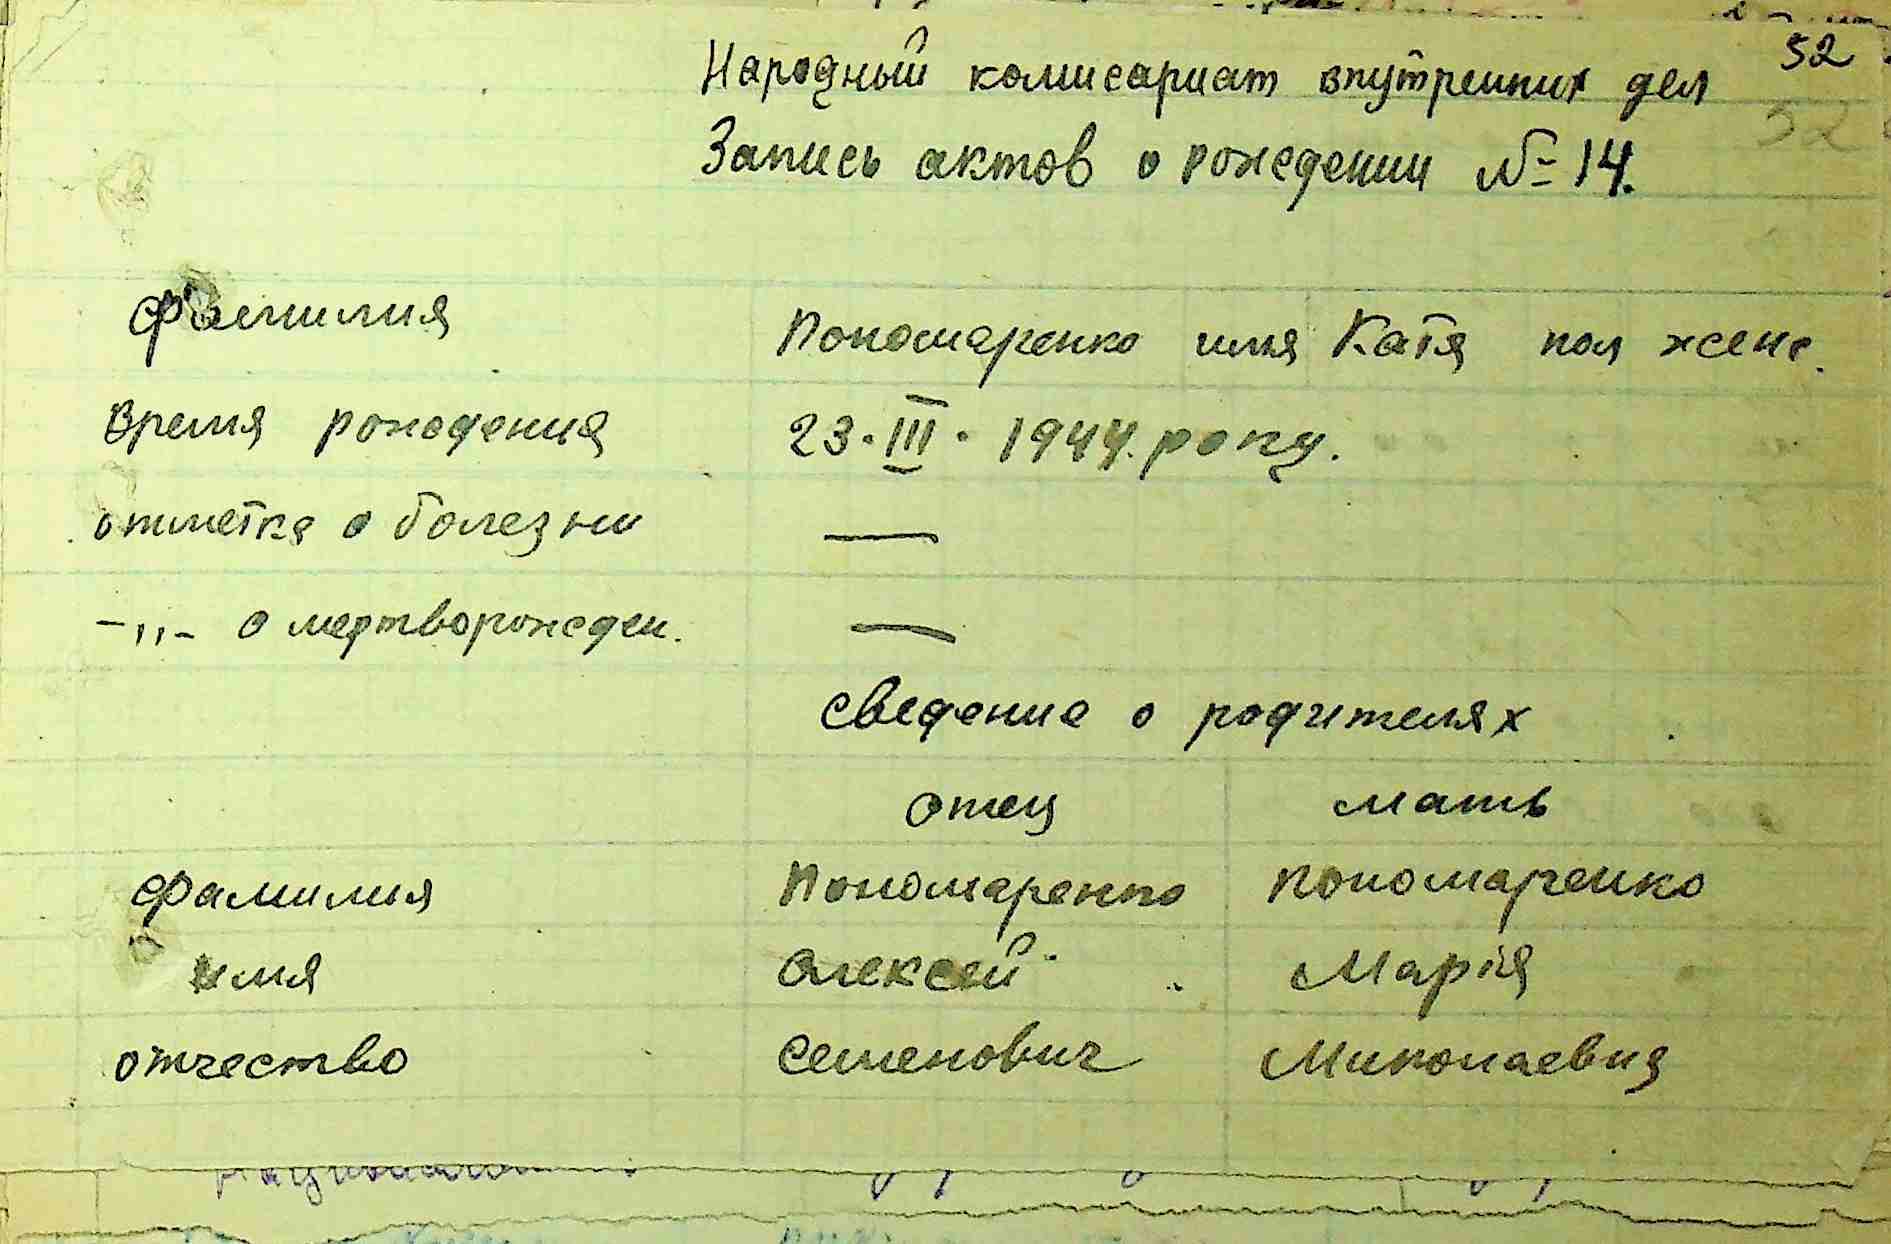 52
Народный комисариат внутренних дел
52
Запись актов о рождении № 14.
Фамилия Пономаренко имя Катя пол женс.
Время рождения 23·III·1944. року.
отметка о болезни —
-„- о мертворожден. —
сведение о родителях
отец мать
Фамилия Пономаренко Пономаренко
имя Олексей Марія
отчество Семенович Миколаевна